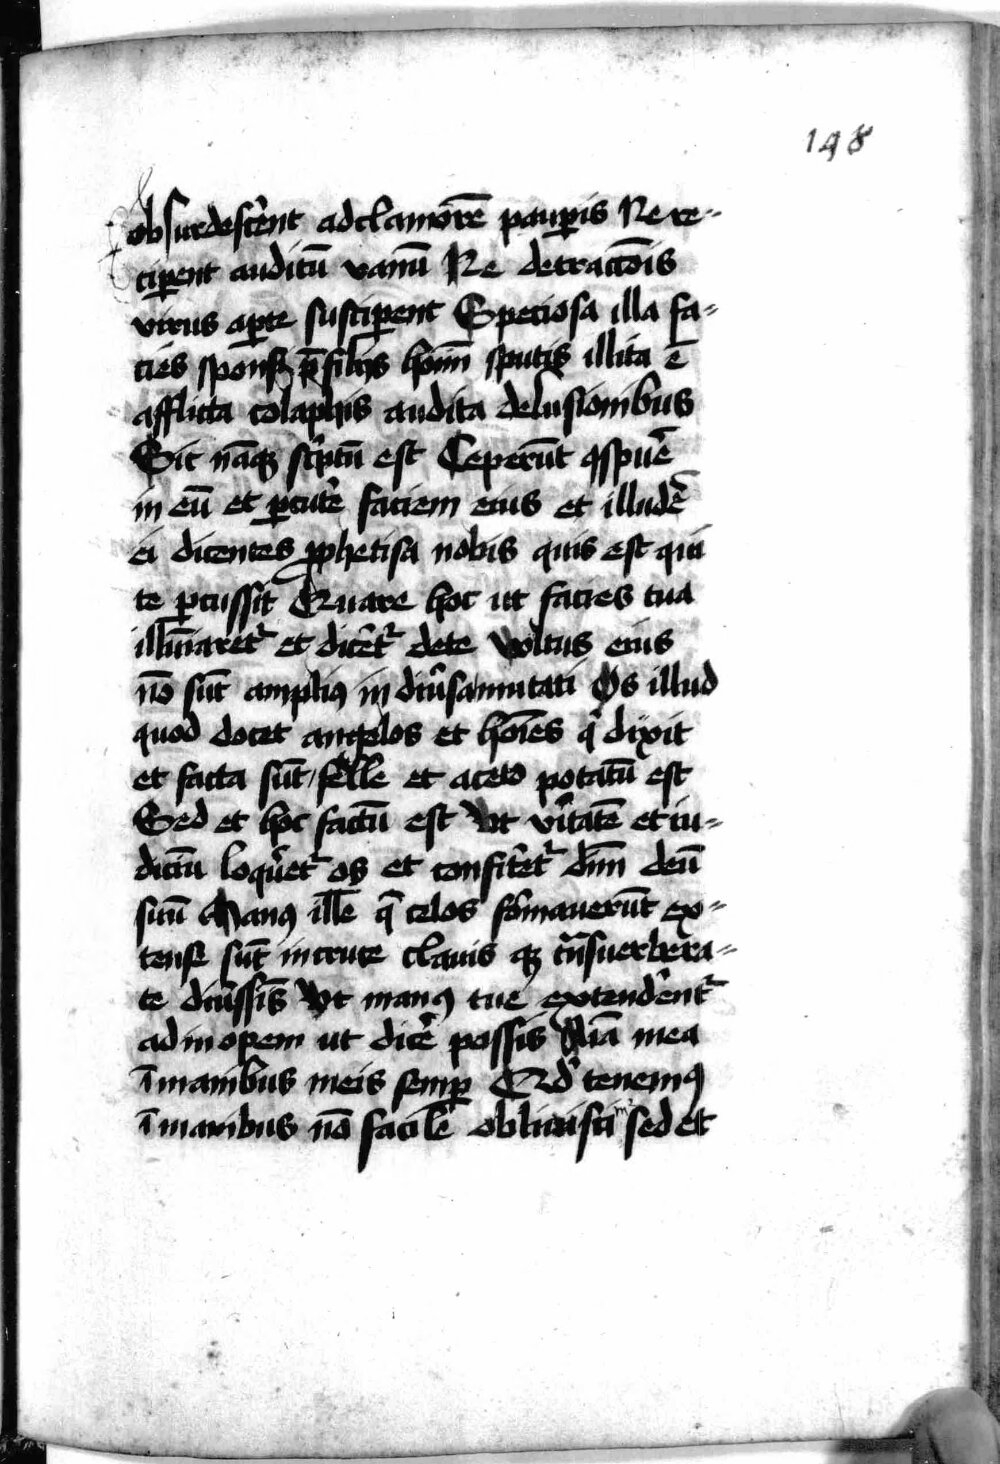 148
obsurdescẽrent ad clamorẽ paupis Ne re-
ciperent auditũ vanũ Ne detractõis
virus aperte susciperent Speciosa illa fa-
cies sponsi p̃ filijs hoĩm sputis illita ẽ
afflicta colaphis audita delusionibus
Sic nãqꝫ scptũ est Ceperũt ꝯspuẽ
in eũ et percutẽ faciem eius et illudẽ
ei dicentes prophetisa nobis quis est qui
te percussit Quare hoc ut facies tua
illũiaret et dicet de te Voltus eius
nõ sũt amplius in diũsa mutati Os illud
quod docet angelos et hoĩes q dixit
et facta sũt felle et aceto potatũ est
Sed et hoc factũ est Ut vitatẽ et iu-
diciũ loquet os et confitet dñm deũ
suũ Manus ille q̃ celos formaverũt ex-
tense sũt in cruce clavis qꝫ trãsverbera-
te diũssis Ut manus tue extendent
ad inopem ut dicẽ possis Aĩa mea
ĩ manibus meis semper Qd tenemus
ĩ manibus nõ facile obliviscim sed et